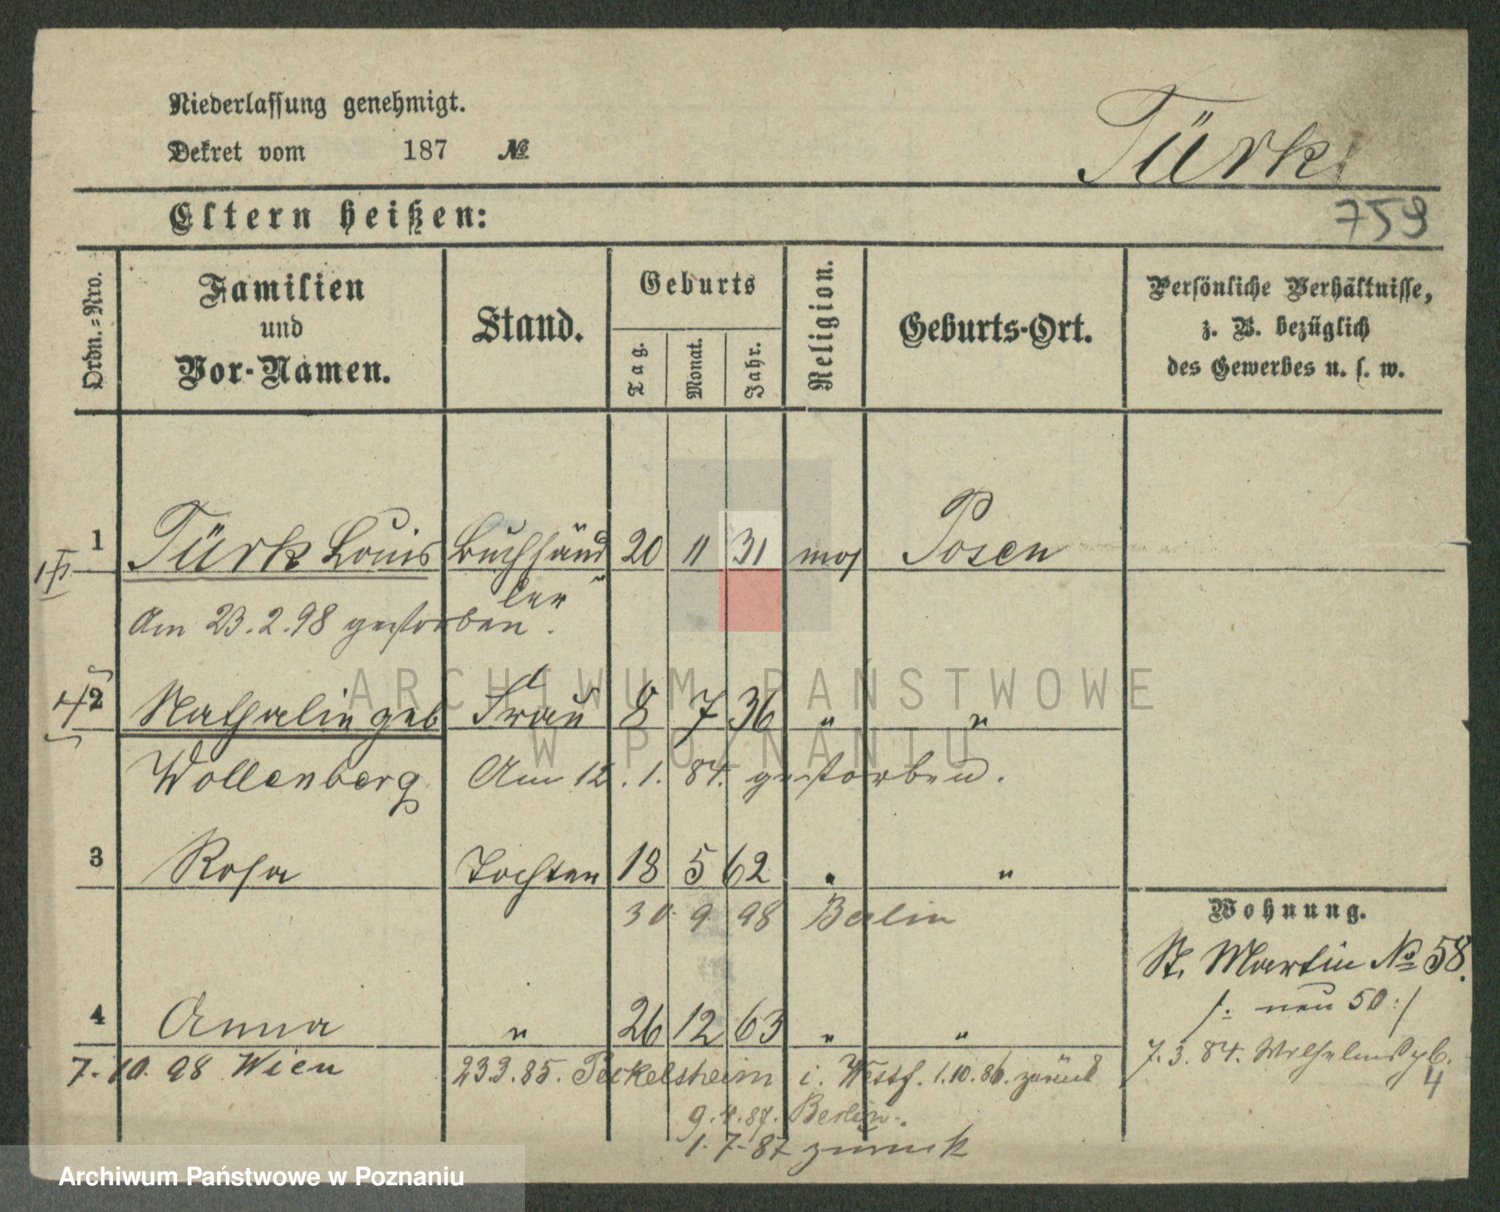 Niederlassung genehmigt.
Dekret vom 187 №
Türk
759
Eltern heißen:
Ordn.=Nro.
Familien und Vor-Namen.
Stand.
Geburts
Tag.
Monat.
Jahr.
Religion.
Geburts-Ort.
Persönliche Verhältnisse,
z. B. bezüglich
des Gewerbes u. s. w.
1 Türk Louis Buchhänd 20 11 31 mos Posen
ler
Am 23.2.98 gestorben.
2 Nathalie geb Frau 8 7 36 " "
Wollenberg Am 12.1.84. gestorben.
3 Rosa Tochter 18 5 62 " "
30 9 98 Berlin
Wohnung.
St. Martin № 58.
/: neu 50 :/
4 Anna " 26 12 63 " "
7.3.84. Wilhelmspl.
4
7.10.98 Wien 23.3.85. Peckelsheim i. Westf. 1.10.86. zurück
9.4.87. Berlin.
1.7.87 zurück
ARCHIWUM PAŃSTWOWE
W POZNANIU
Archiwum Państwowe w Poznaniu